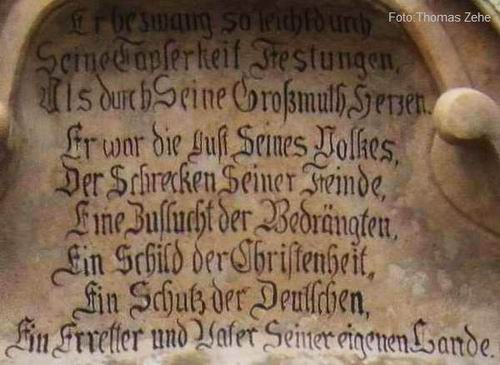 Foto:Thomas Zehe
Er bezwang so leicht durch
Seine Tapferkeit Festungen,
Als durch Seine Großmuth Herzen.
Er war die Lust Seines Volkes,
Der Schrecken Seiner Feinde,
Eine Zuflucht der Bedrängten,
Ein Schild der Christenheit,
Ein Schutz der Deutschen,
Ein Erretter und Vater Seiner eigenen Lande.